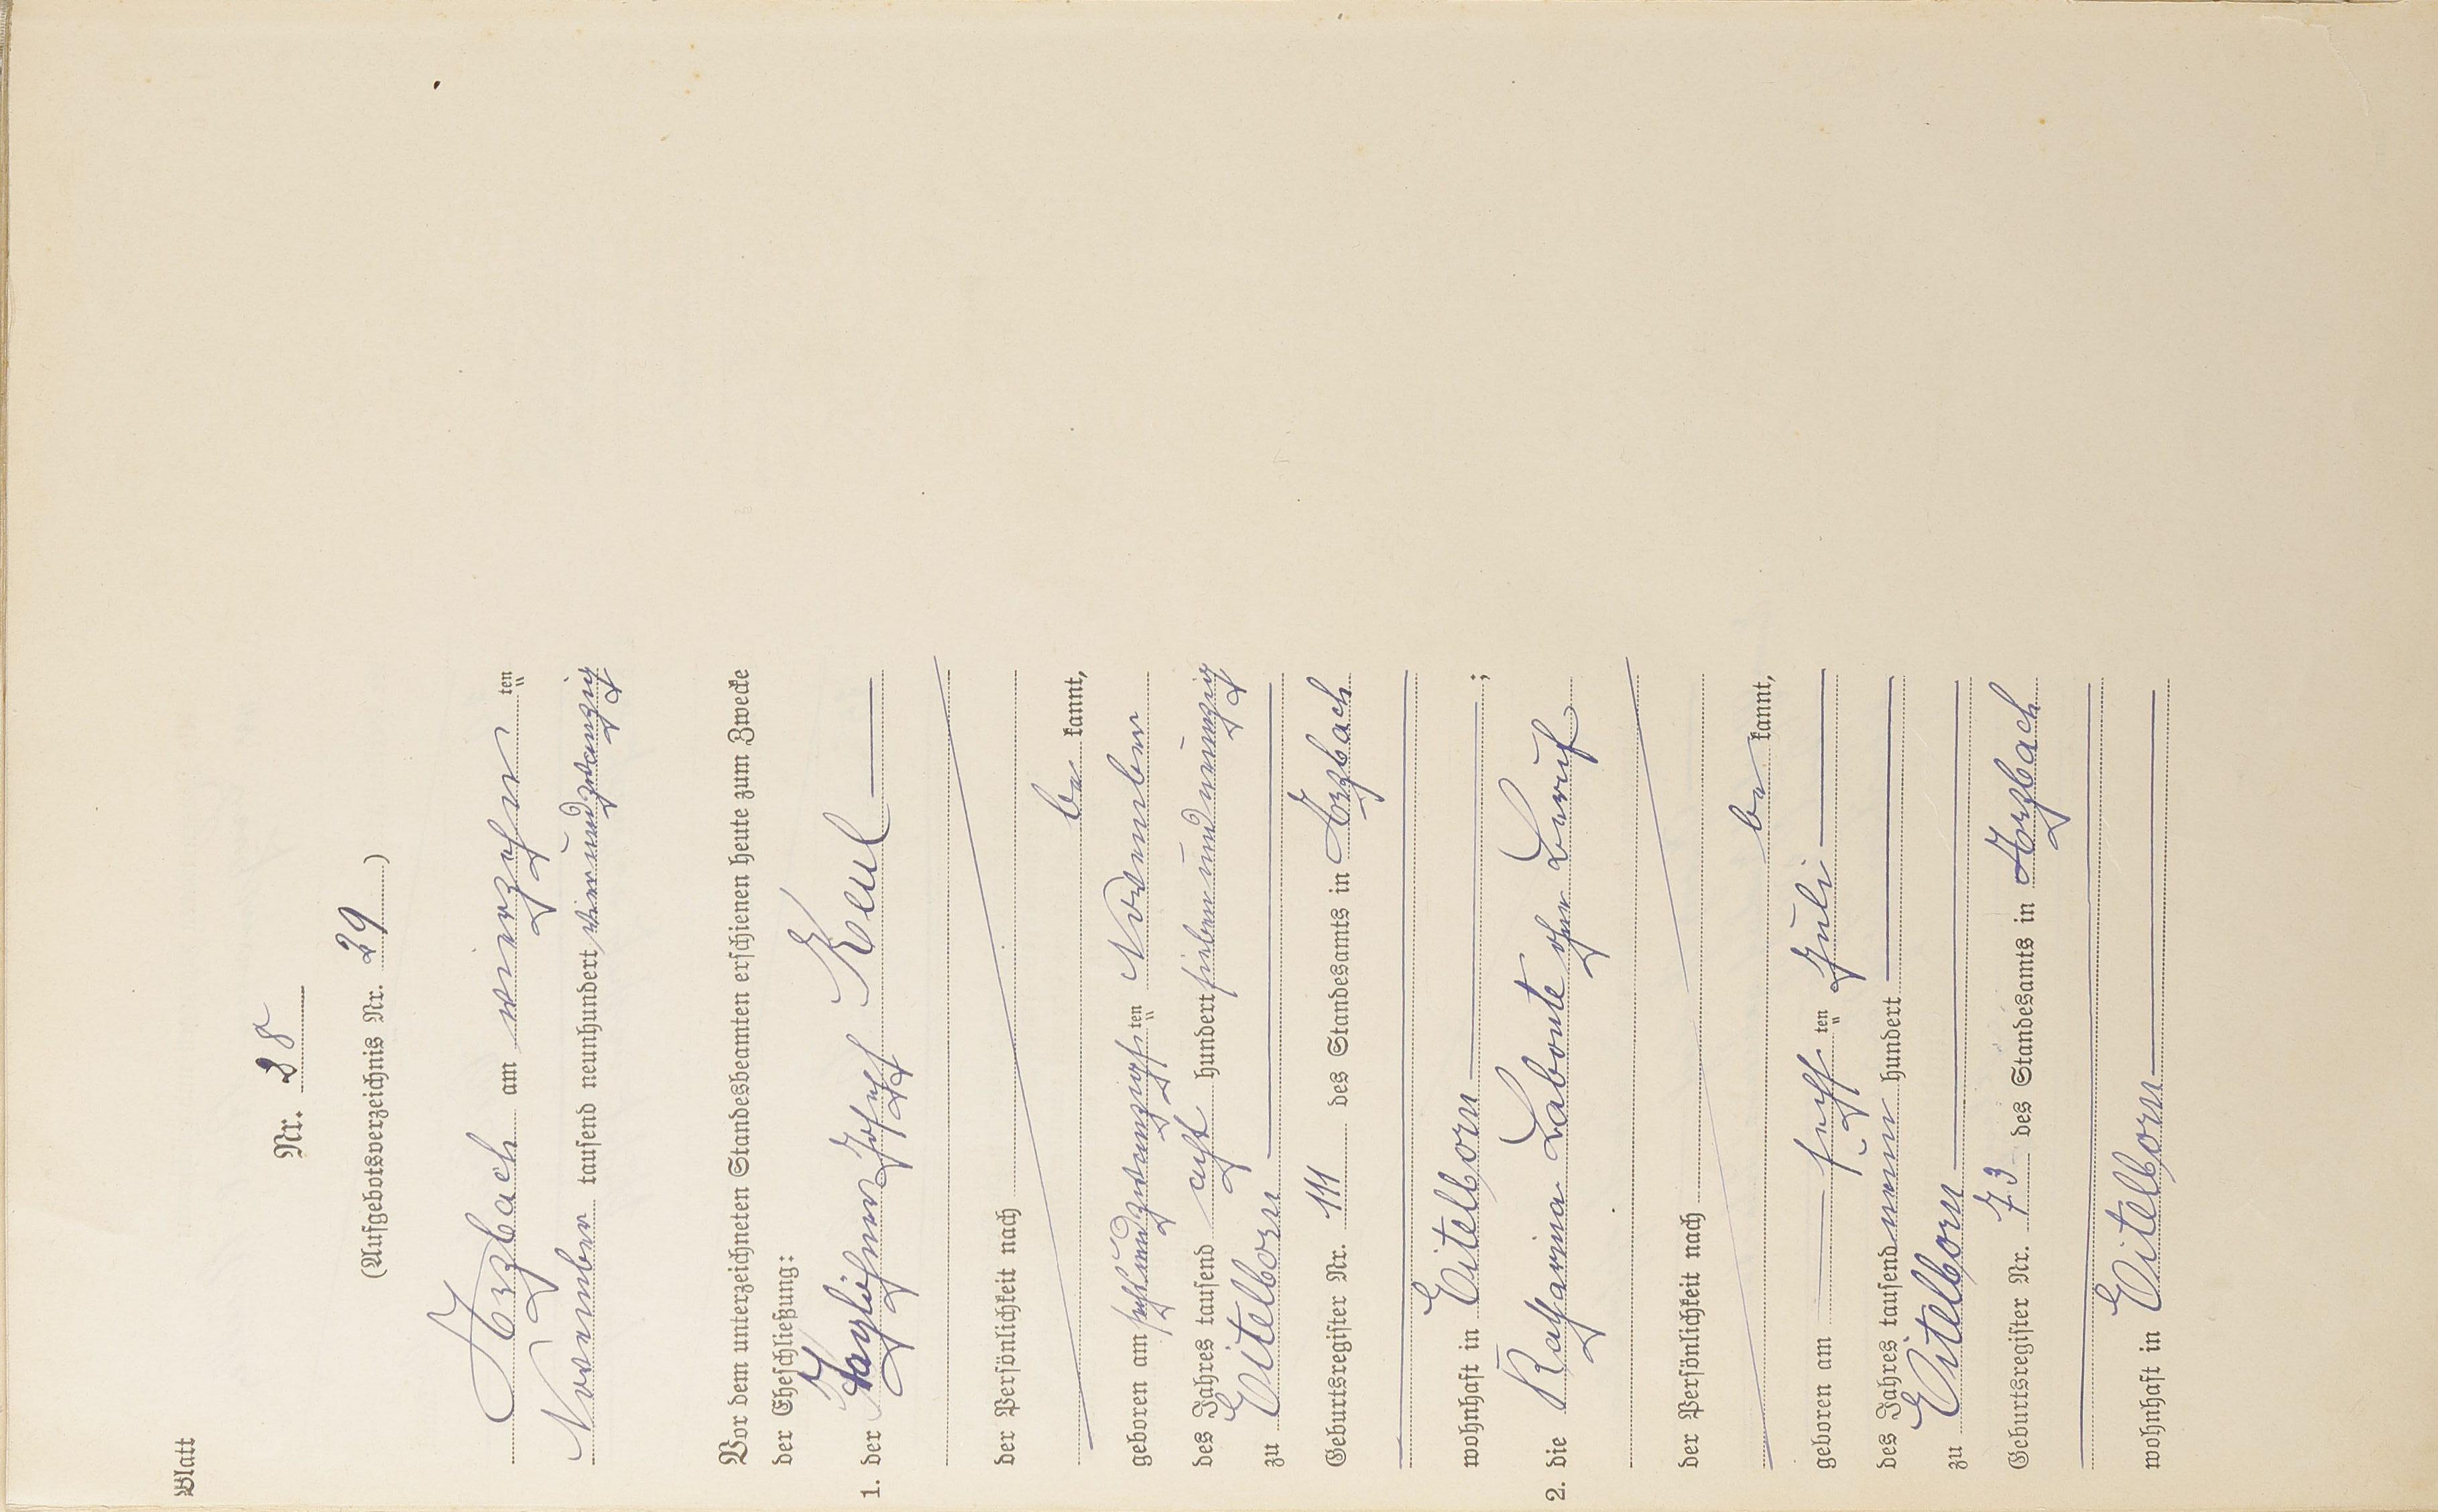 Blatt
Nr. 28
(Aufgebotsverzeichnis Nr. 29)
Arzbach am vierzehn ten
November tausend neunhundert vierundzwanzig
Vor dem unterzeichneten Standesbeamten erschienen heute zum Zwecke
der Eheschließung:
1. der Taglöhner Josef Keul
der Persönlichkeit nach
be kannt,
geboren am sechsundzwanzigsten ten November
des Jahres tausend acht hundert siebenundneunzig
zu Eitelborn
Geburtsregister Nr. 111 des Standesamts in Arzbach
wohnhaft in Eitelborn ;
2. die Katharina Labonte ohne Beruf
der Persönlichkeit nach
be kannt,
geboren am sechs ten Juli
des Jahres tausend neun hundert
zu Eitelborn
Geburtsregister Nr. 73 des Standesamts in Arzbach
wohnhaft in Eitelborn